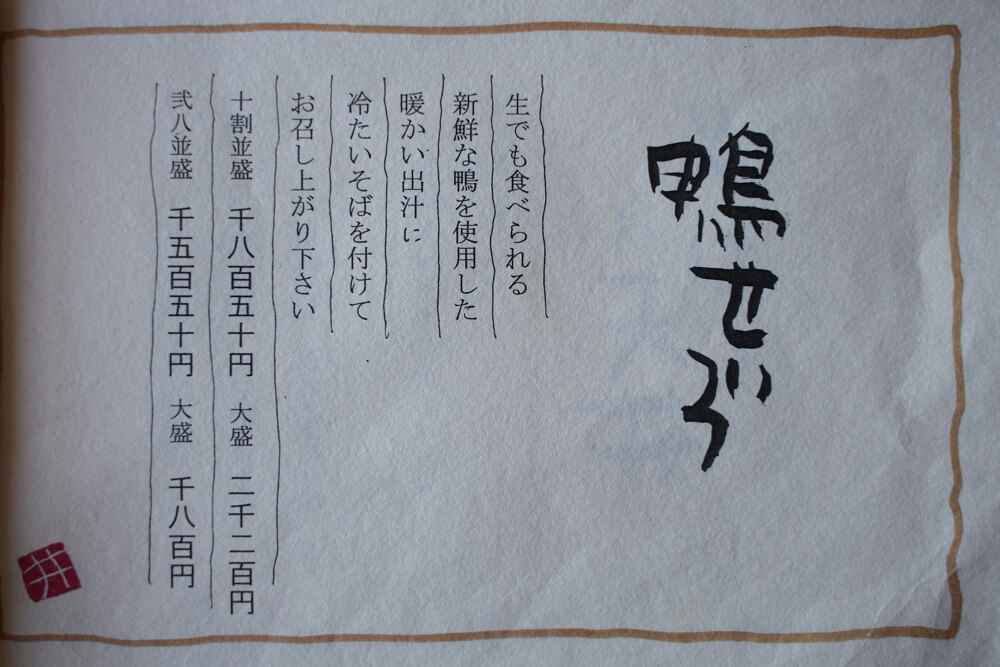 鴨せいろ
生でも食べられる
新鮮な鴨を使用した
暖かい出汁に
冷たいそばを付けて
お召し上がり下さい
十割並盛 千八百五十円 大盛 二千二百円
弐八並盛 千五百五十円 大盛 千八百円
井